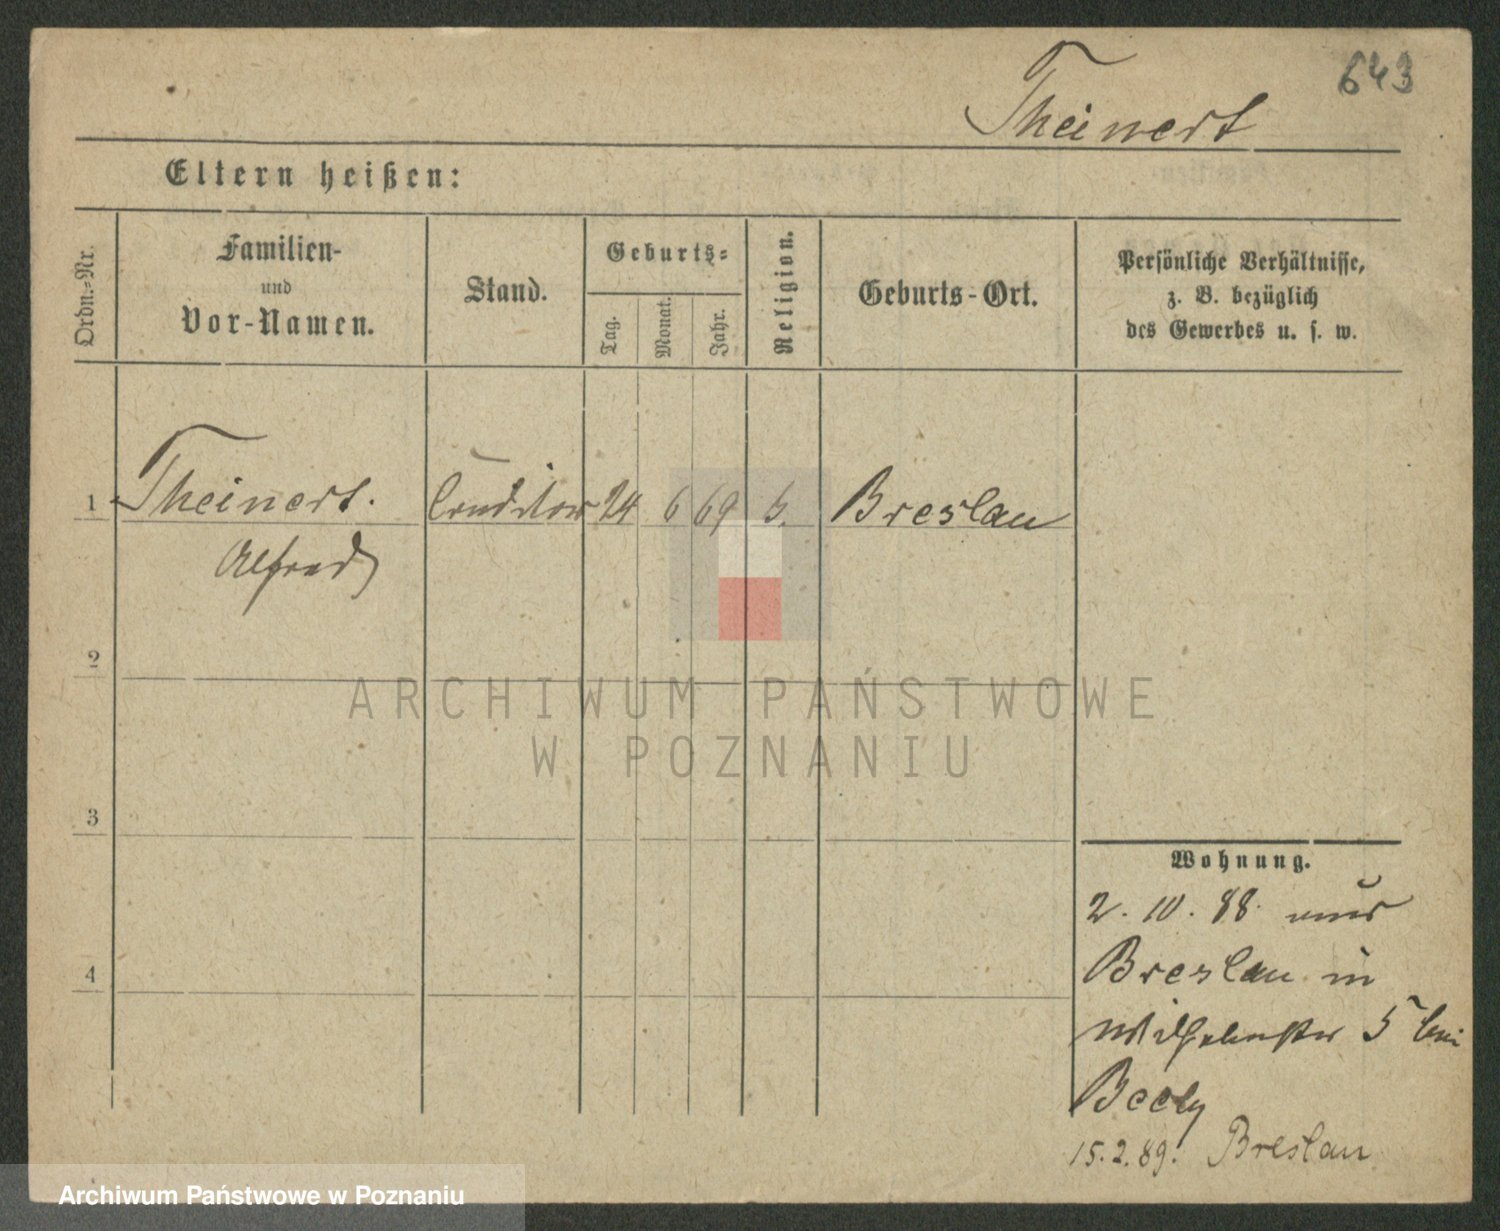 643
Theinert
Eltern heißen:
Ordn.-Nr.
Familien-
und
Vor-Namen.
Stand.
Geburts-
Tag.
Monat.
Jahr.
Religion.
Geburts-Ort.
Persönliche Verhältnisse,
z. B. bezüglich
des Gewerbes u. s. w.
1 Theinert. Conditor 24 6 69 Breslau
Alfred
2
3
4
Wohnung.
2. 10. 88. aus
Breslau in
Wilhelmstr 5 bei
Beely
15.2.89. Breslau
ARCHIWUM PAŃSTWOWE
W POZNANIU
Archiwum Państwowe w Poznaniu